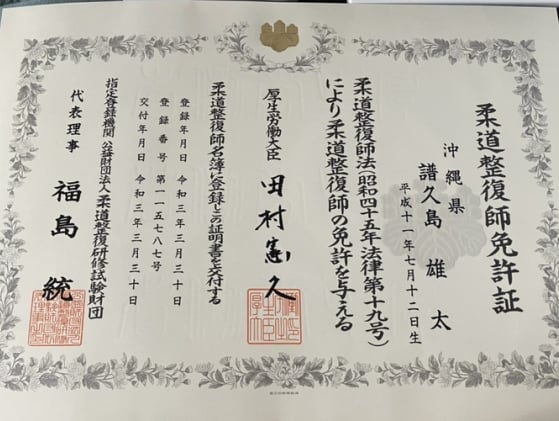 柔道整復師免許証
沖縄県
譜久島 雄太
平成十一年七月十二日生
柔道整復師法(昭和四十五年法律第十九号)
により柔道整復師の免許を与える
厚生労働大臣 田村憲久
柔道整復師名簿に登録しこの証明書を交付する
登録年月日 令和三年三月三十日
登録番号 第一一五七八七号
交付年月日 令和三年三月三十日
指定登録機関 公益財団法人 柔道整復研修試験財団
代表理事 福島 統